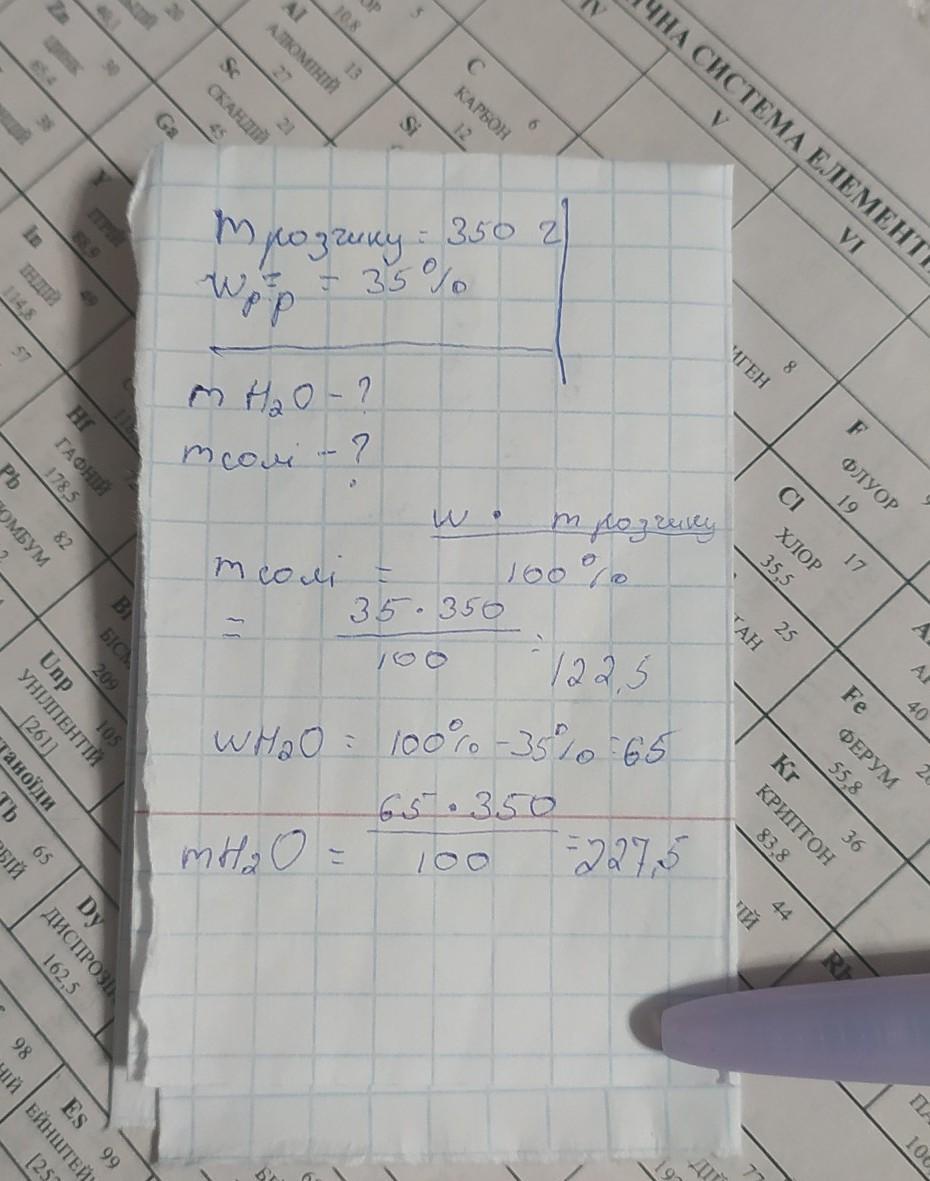 ІЧНА СИСТЕМА ЕЛЕМЕНТІ
IV
V
VI
Zn
ЦИНК
30
65,4
Al
АЛЮМІНІЙ
13
Sc
СКАНДІЙ
21
45
27
10,8
5
C
КАРБОН
6
12
Si
Ga
Y
ІТРІЙ
88,9
In
ІНДІЙ
49
114,8
38
57
Hf
ГАФНІЙ
178,5
Pb
82
209
Unp
УНІЛПЕНТІЙ
105
[261]
Tb
65
Dy
ДИСПРОЗІ
162,5
98
Es
99
ЕЙНШТЕЙ
8
F
ФЛУОР
19
9
Cl
ХЛОР
17
35,5
25
Fe
ФЕРУМ
55,8
40
Kr
КРИПТОН
36
83,8
44
m розчину = 350 г
w р-р = 35%
m H₂O - ?
m солі - ?
w · m розчину
m солі = 100%
= 35 · 350
100 = 122,5
wH₂O = 100% - 35% = 65
65 · 350
mH₂O = 100 = 227,5